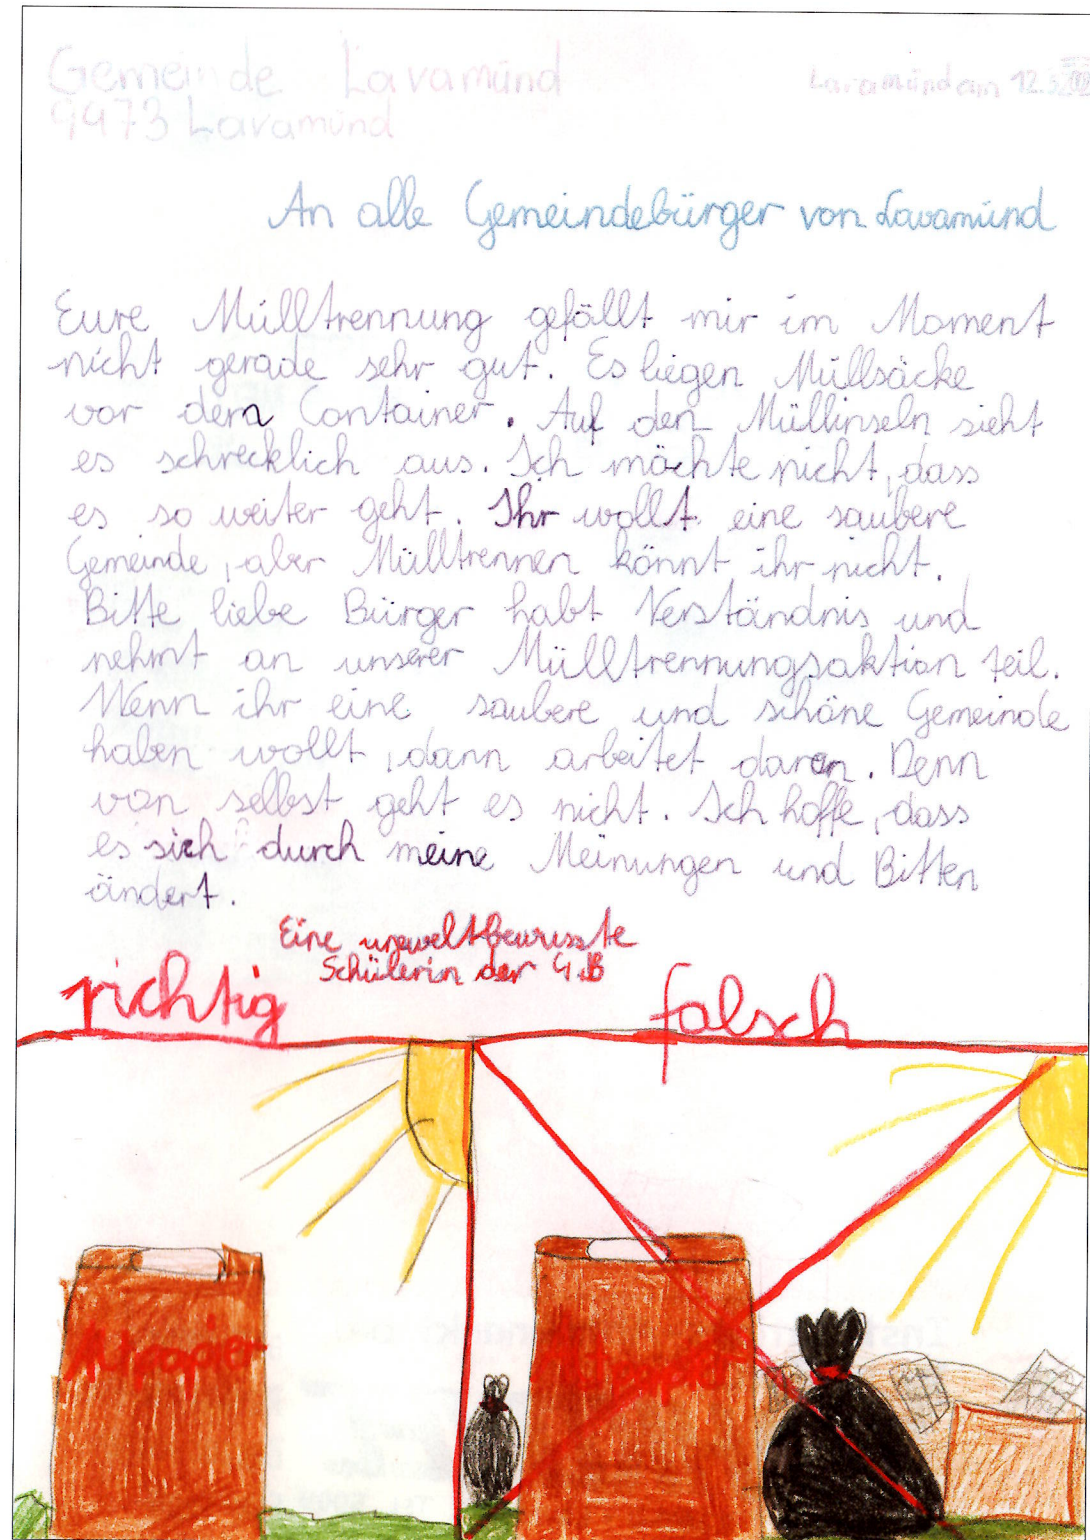 Gemeinde Lavamünd
Lavamünd am 12.3.
9473 Lavamünd
An alle Gemeindebürger von Lavamünd
Eure Mülltrennung gefällt mir im Moment
nicht gerade sehr gut. Es liegen Müllsäcke
vor dem Container. Auf den Müllinseln sieht
es schrecklich aus. Ich möchte nicht, dass
es so weiter geht. Ihr wollt eine saubere
Gemeinde, aber Mülltrennen könnt ihr nicht.
Bitte liebe Bürger habt Verständnis und
nehmt an unserer Mülltrennungsaktion teil.
Wenn ihr eine saubere und schöne Gemeinde
haben wollt, dann arbeitet daran. Denn
von selbst geht es nicht. Ich hoffe, dass
es sich durch meine Meinungen und Bitten
ändert.
Eine umweltbewusste
Schülerin der 4.B
richtig
falsch
Altpapier
Altpapier